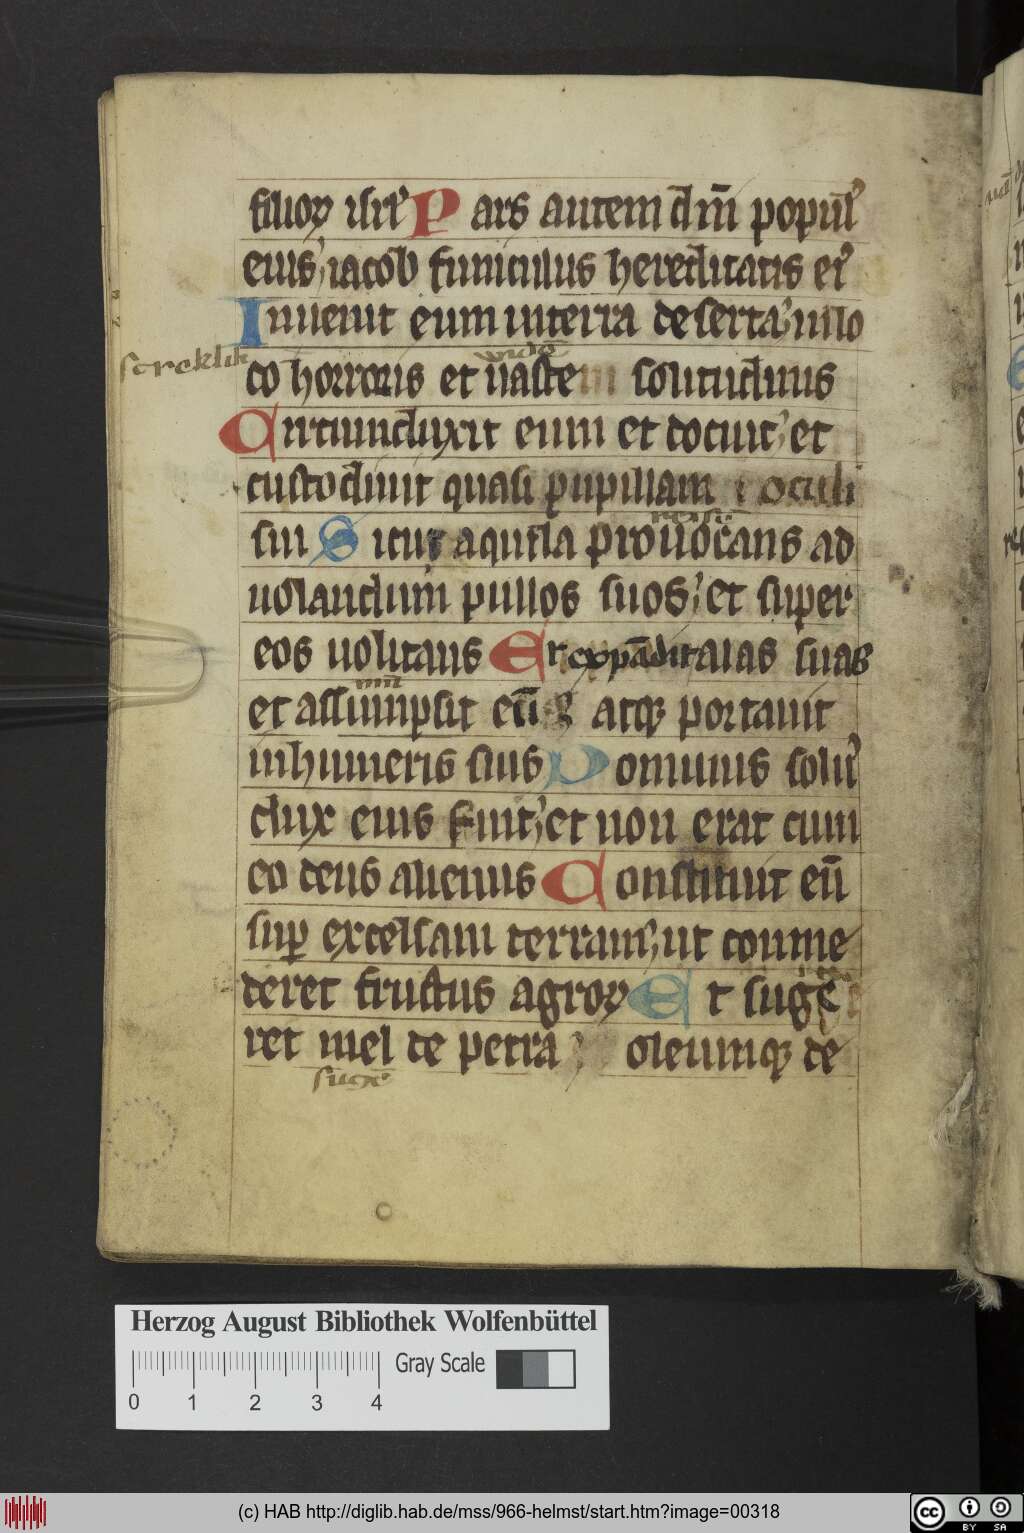 filioꝝ isrl̓ Pars autem dn̄i popul̓
eius, iacob funiculus hereditatis ei᷒
Inuenit eum in terra deserta, in lo
screklik
co horroris et uaste solitudinis
Circumduxit eum et docuit, et
custodiuit quasi pupillam oculi
sui Sicut aquila prouocans ad
uolandum pullos suos, et super
eos uolitans Et expādit alas suas
et assumpsit eū atqꝫ portauit
in humeris suis Dominus solus
dux eius fuit, et non erat cum
eo deus alienus Constituit eū
suꝑ excelsam terram, ut come
deret fructus agroꝝ Et suge
ret mel de petra oleumqꝫ de
suge
Herzog August Bibliothek Wolfenbüttel
Gray Scale
0 1 2 3 4
(c) HAB http://diglib.hab.de/mss/966-helmst/start.htm?image=00318
cc BY SA